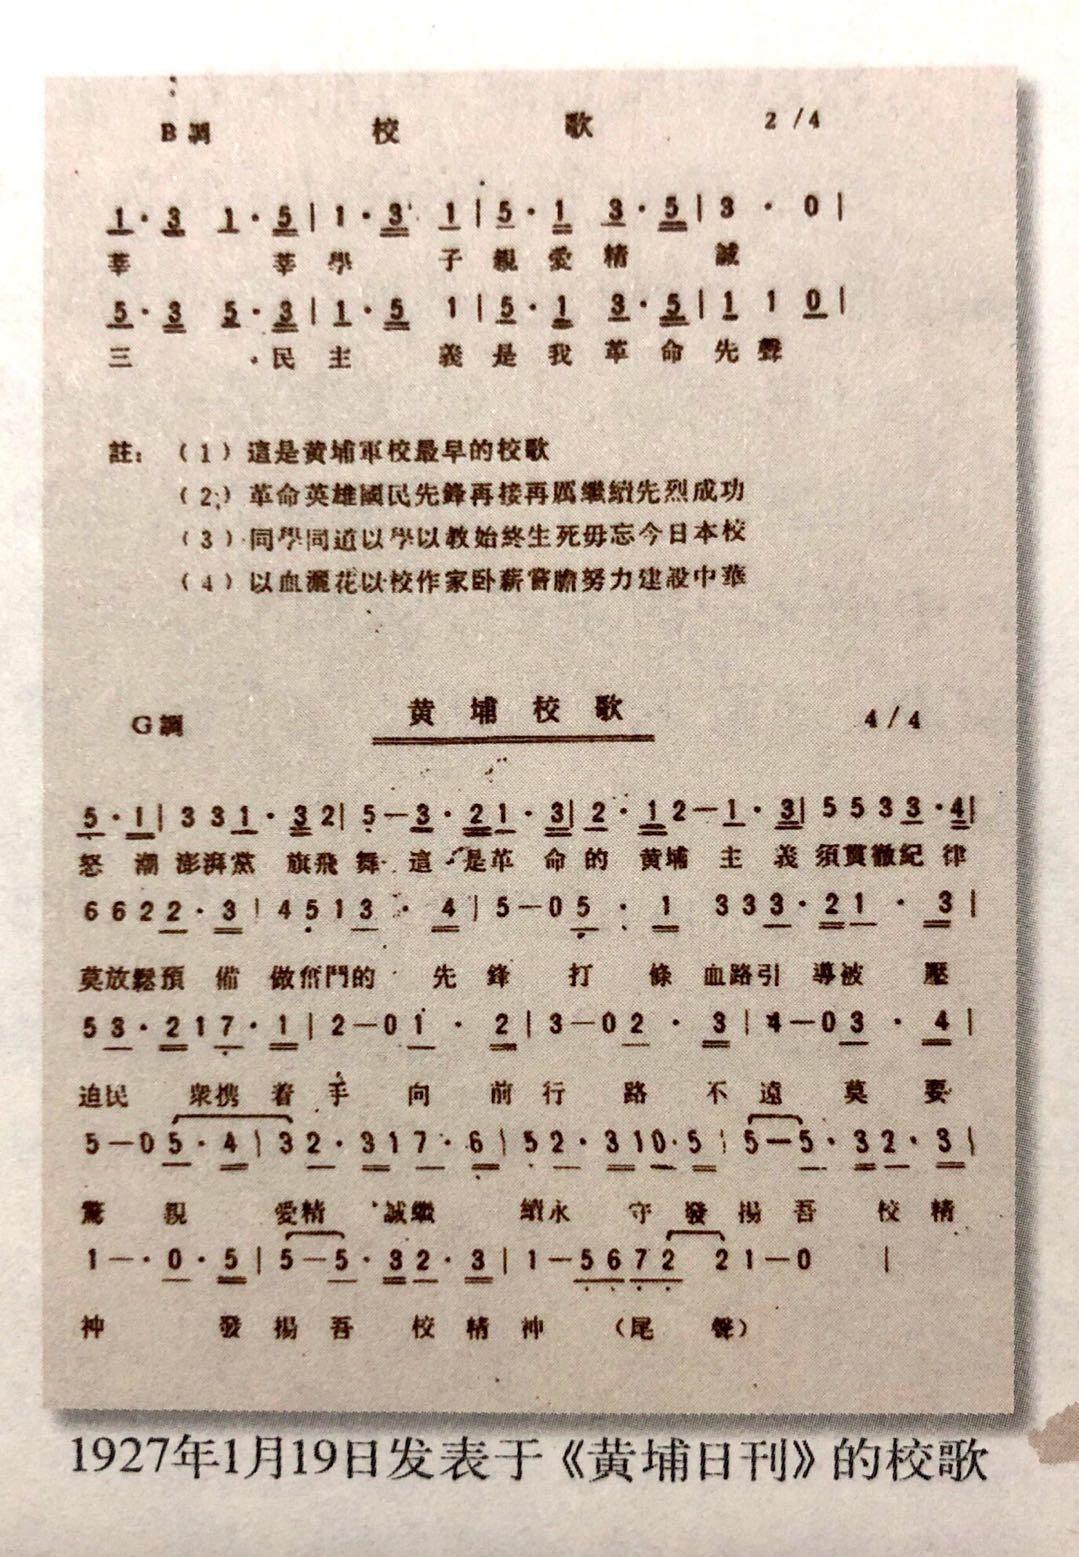 B調 校 歌 2/4
1·3 1·5|1·3 1|5·1 3·5|3·0|
莘 莘學 子親愛精 誠
5·3 5·3|1·5 1|5·1 3·5|1 1 0|
三 民主 義是我革命先聲
註:(1)這是黃埔軍校最早的校歌
(2)革命英雄國民先鋒再接再厲繼續先烈成功
(3)同學同道以學以教始終生死毋忘今日本校
(4)以血灑花以校作家卧薪嘗膽努力建設中華
G調 黃埔校歌 4/4
5·1|331·32|5—3·21·3|2·12—1·3|5533·4|
怒潮澎湃黨旗飛舞這是革命的黃埔主義須貫徹紀律
6622·3|4513·4|5—05·1 333·21·3|
莫放鬆預備做奮鬥的先鋒打條血路引導被壓
53·217·1|2—01·2|3—02·3|4—03·4|
迫民衆携着手向前行路不遠莫要
5—05·4|32·317·6|52·310·5|5—5·32·3|
驚親愛精誠繼續永守發揚吾校精
1—·0·5|5—5·32·3|1—5672 21—0 |
神 發揚吾校精神(尾聲)
1927年1月19日发表于《黄埔日刊》的校歌